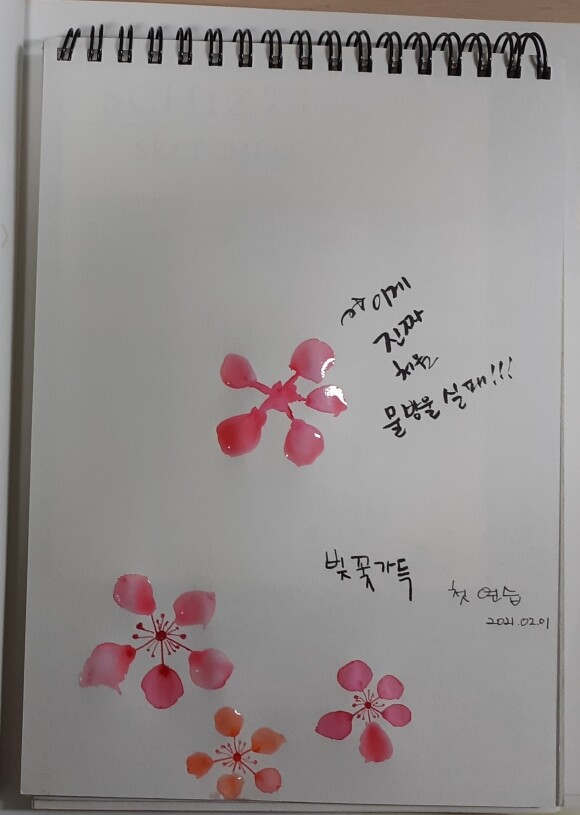 이게
진짜
처음
물방울 실패!!!
벚꽃가득
첫 연습
2021.02.01